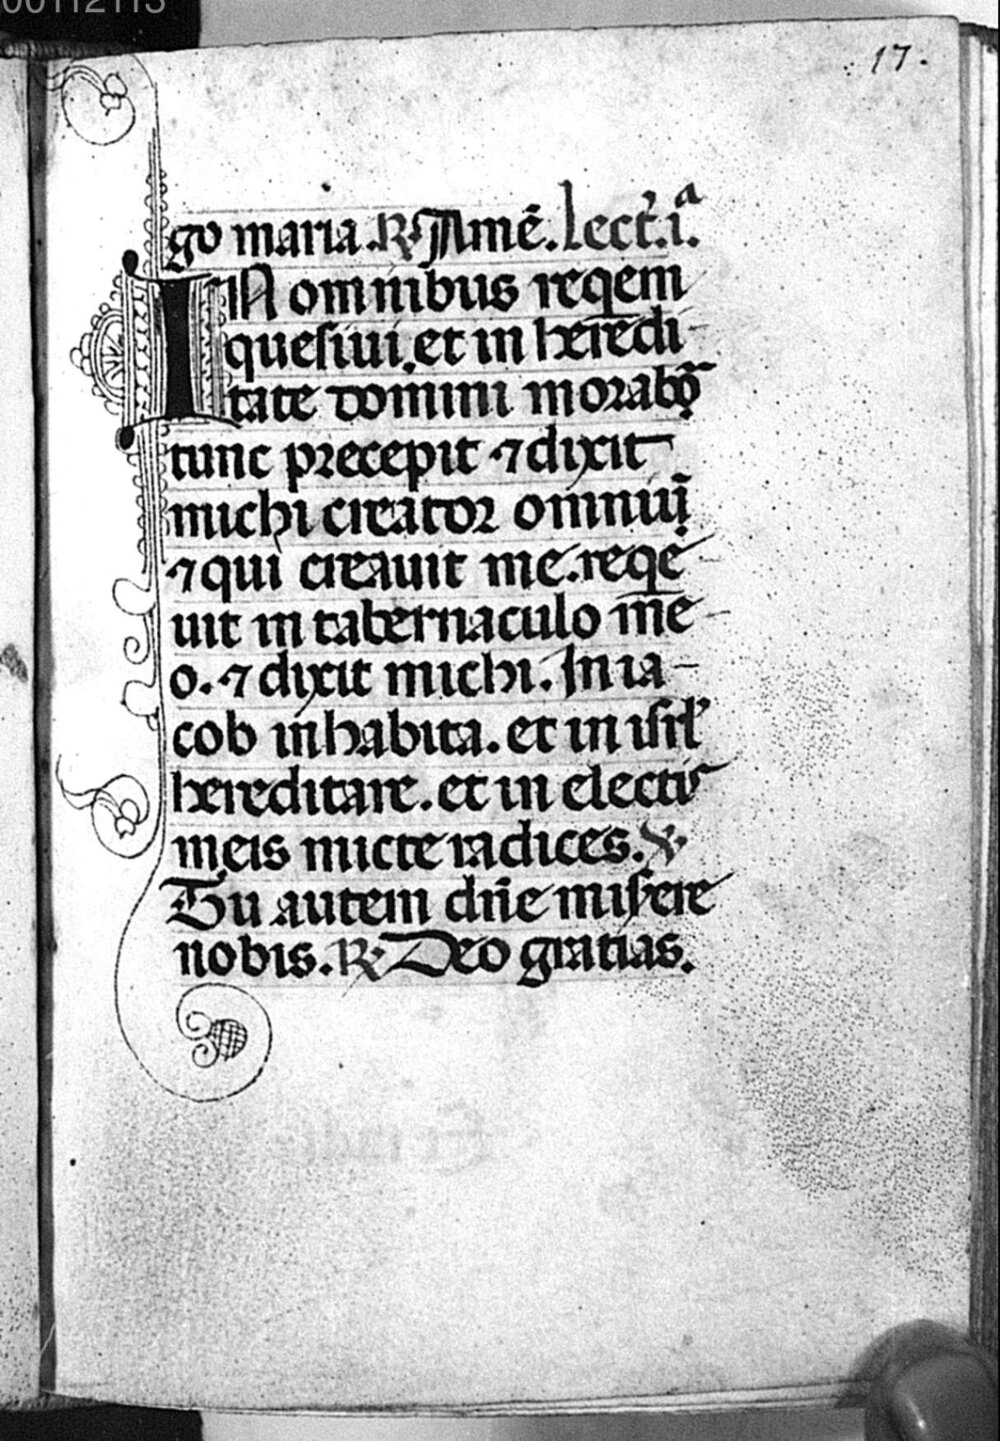 00112113
17.
go maria. ℟. Amē. Lect̉. iª.
IN omnibus reqem
quesiui. et in heredi-
tate domini morabõr
tunc precepit ⁊ dixit
michi creator omniuȷ̃
⁊ qui creauit me. reqe-
uit in tabernaculo me-
o. ⁊ dixit michi. In ia-
cob inhabita. et in isrl̉
hereditare. et in electis
meis micte radices. ℣.
Tu autem dñe misere
nobis. ℟. Deo gratias.